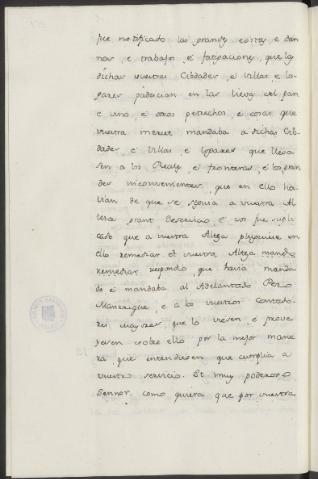 fue notificado las grandes costas, e dan
nos, e trabajos, e fatigaciones, que las
dichas vuestras Cibdades, é Villas, e lo-
gares padecian en las lievas del pan
e vino, é otros petrechos, é cosas que
vuestra merced mandaba a dichas Cib-
dades e Villas e logares que lleva
sen a los Reales, é fronteras, é los gran
des inconvenientes, que en ello ha-
bian de que se seguia a vuestra Al-
teza grant deservicio é vos fue supli
cado que a vuestra Alteza pluguiese en
ello remediar. Et vuestra Alteza mandó
remediar respondio que havia manda-
do é mandaba al Adelantado Pero
Manrrique, e a los vuestros Contado-
res mayores que lo viesen, é prove
yesen cerca ello por la mejor mane
ra, que entendiesen que cumplia a
vuestro servicio. Et muy poderoso
Sennor, como quiera que por vuestra